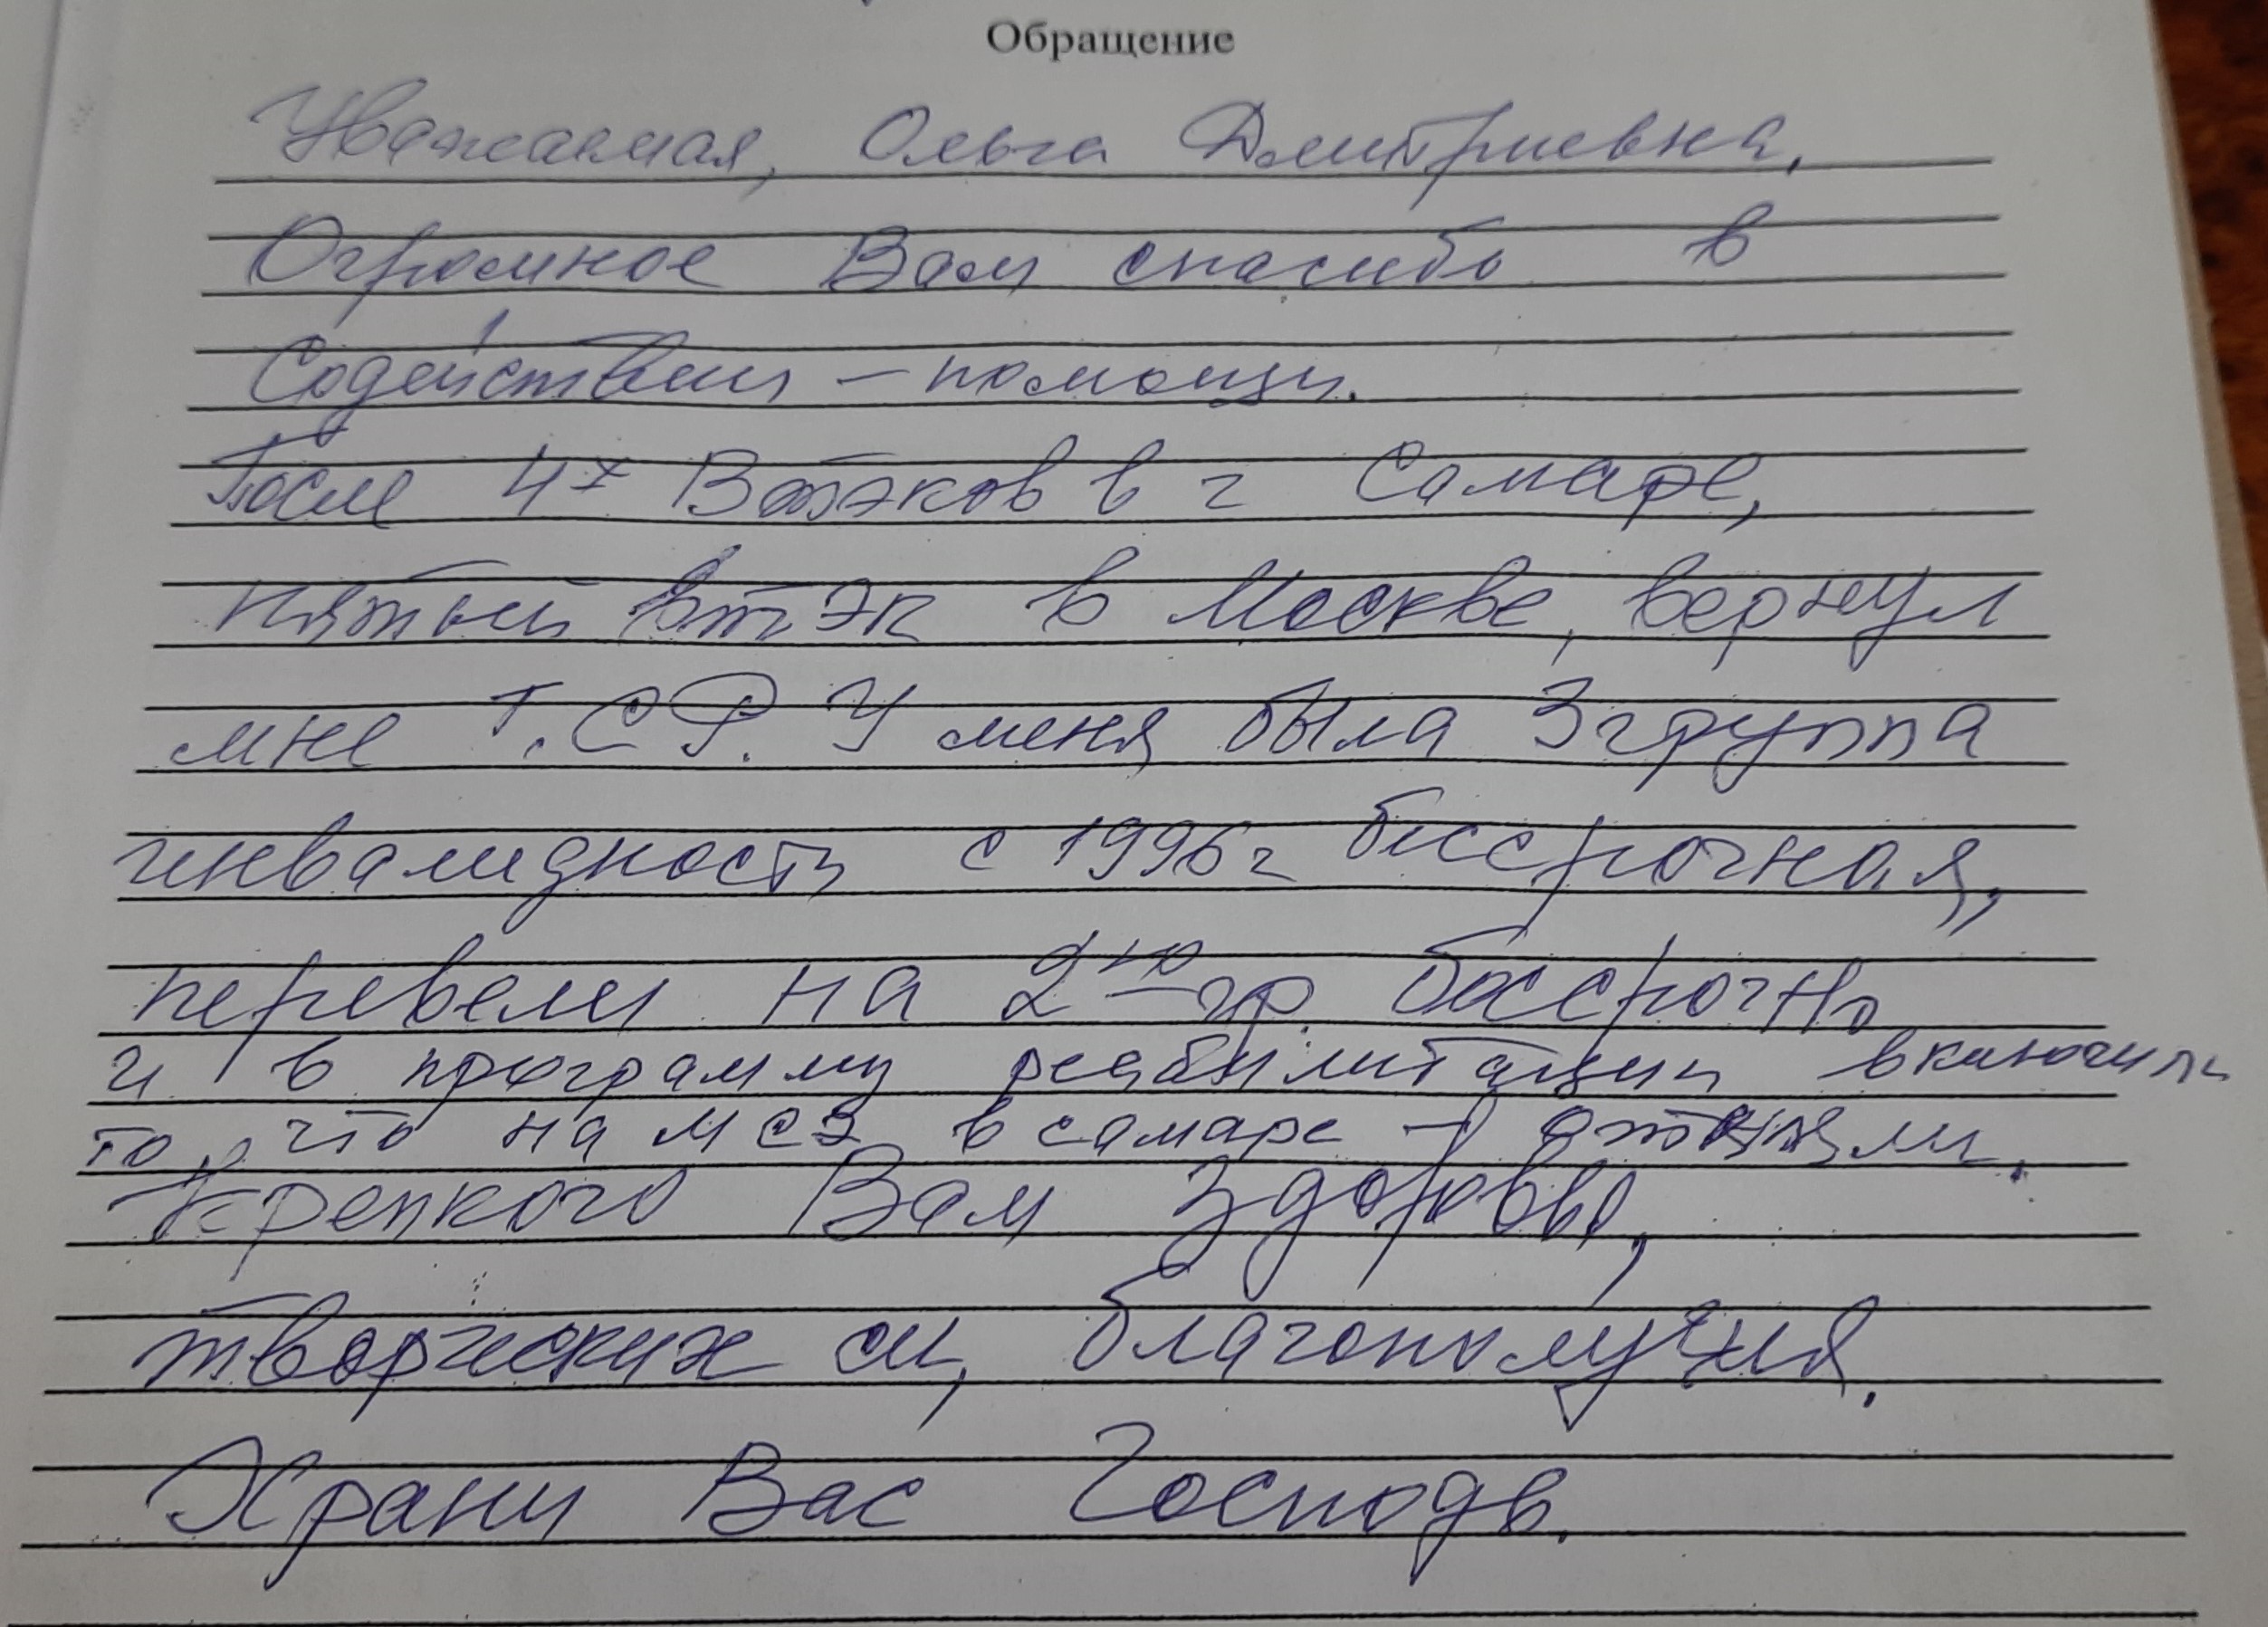 Обращение
Уважаемая, Ольга Дмитриевна,
Огромное Вам спасибо в
Содействии – помощи.
После 4х Втэков в г Самаре,
пятый втэк в Москве, вернул
мне т.СР. У меня была 3 группа
инвалидность с 1996г бессрочная,
перевели на 2ую гр. бессрочно
и в программу реабилитации включили
то, что на МСЭ в самаре – отняли.
Крепкого Вам здоровья,
творческих сил, благополучия.
Храни Вас Господь.